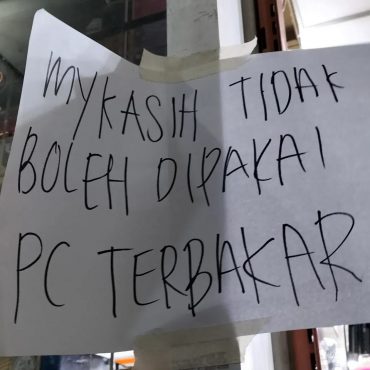 MYKASIH TIDAK
BOLEH DIPAKAI
PC TERBAKAR